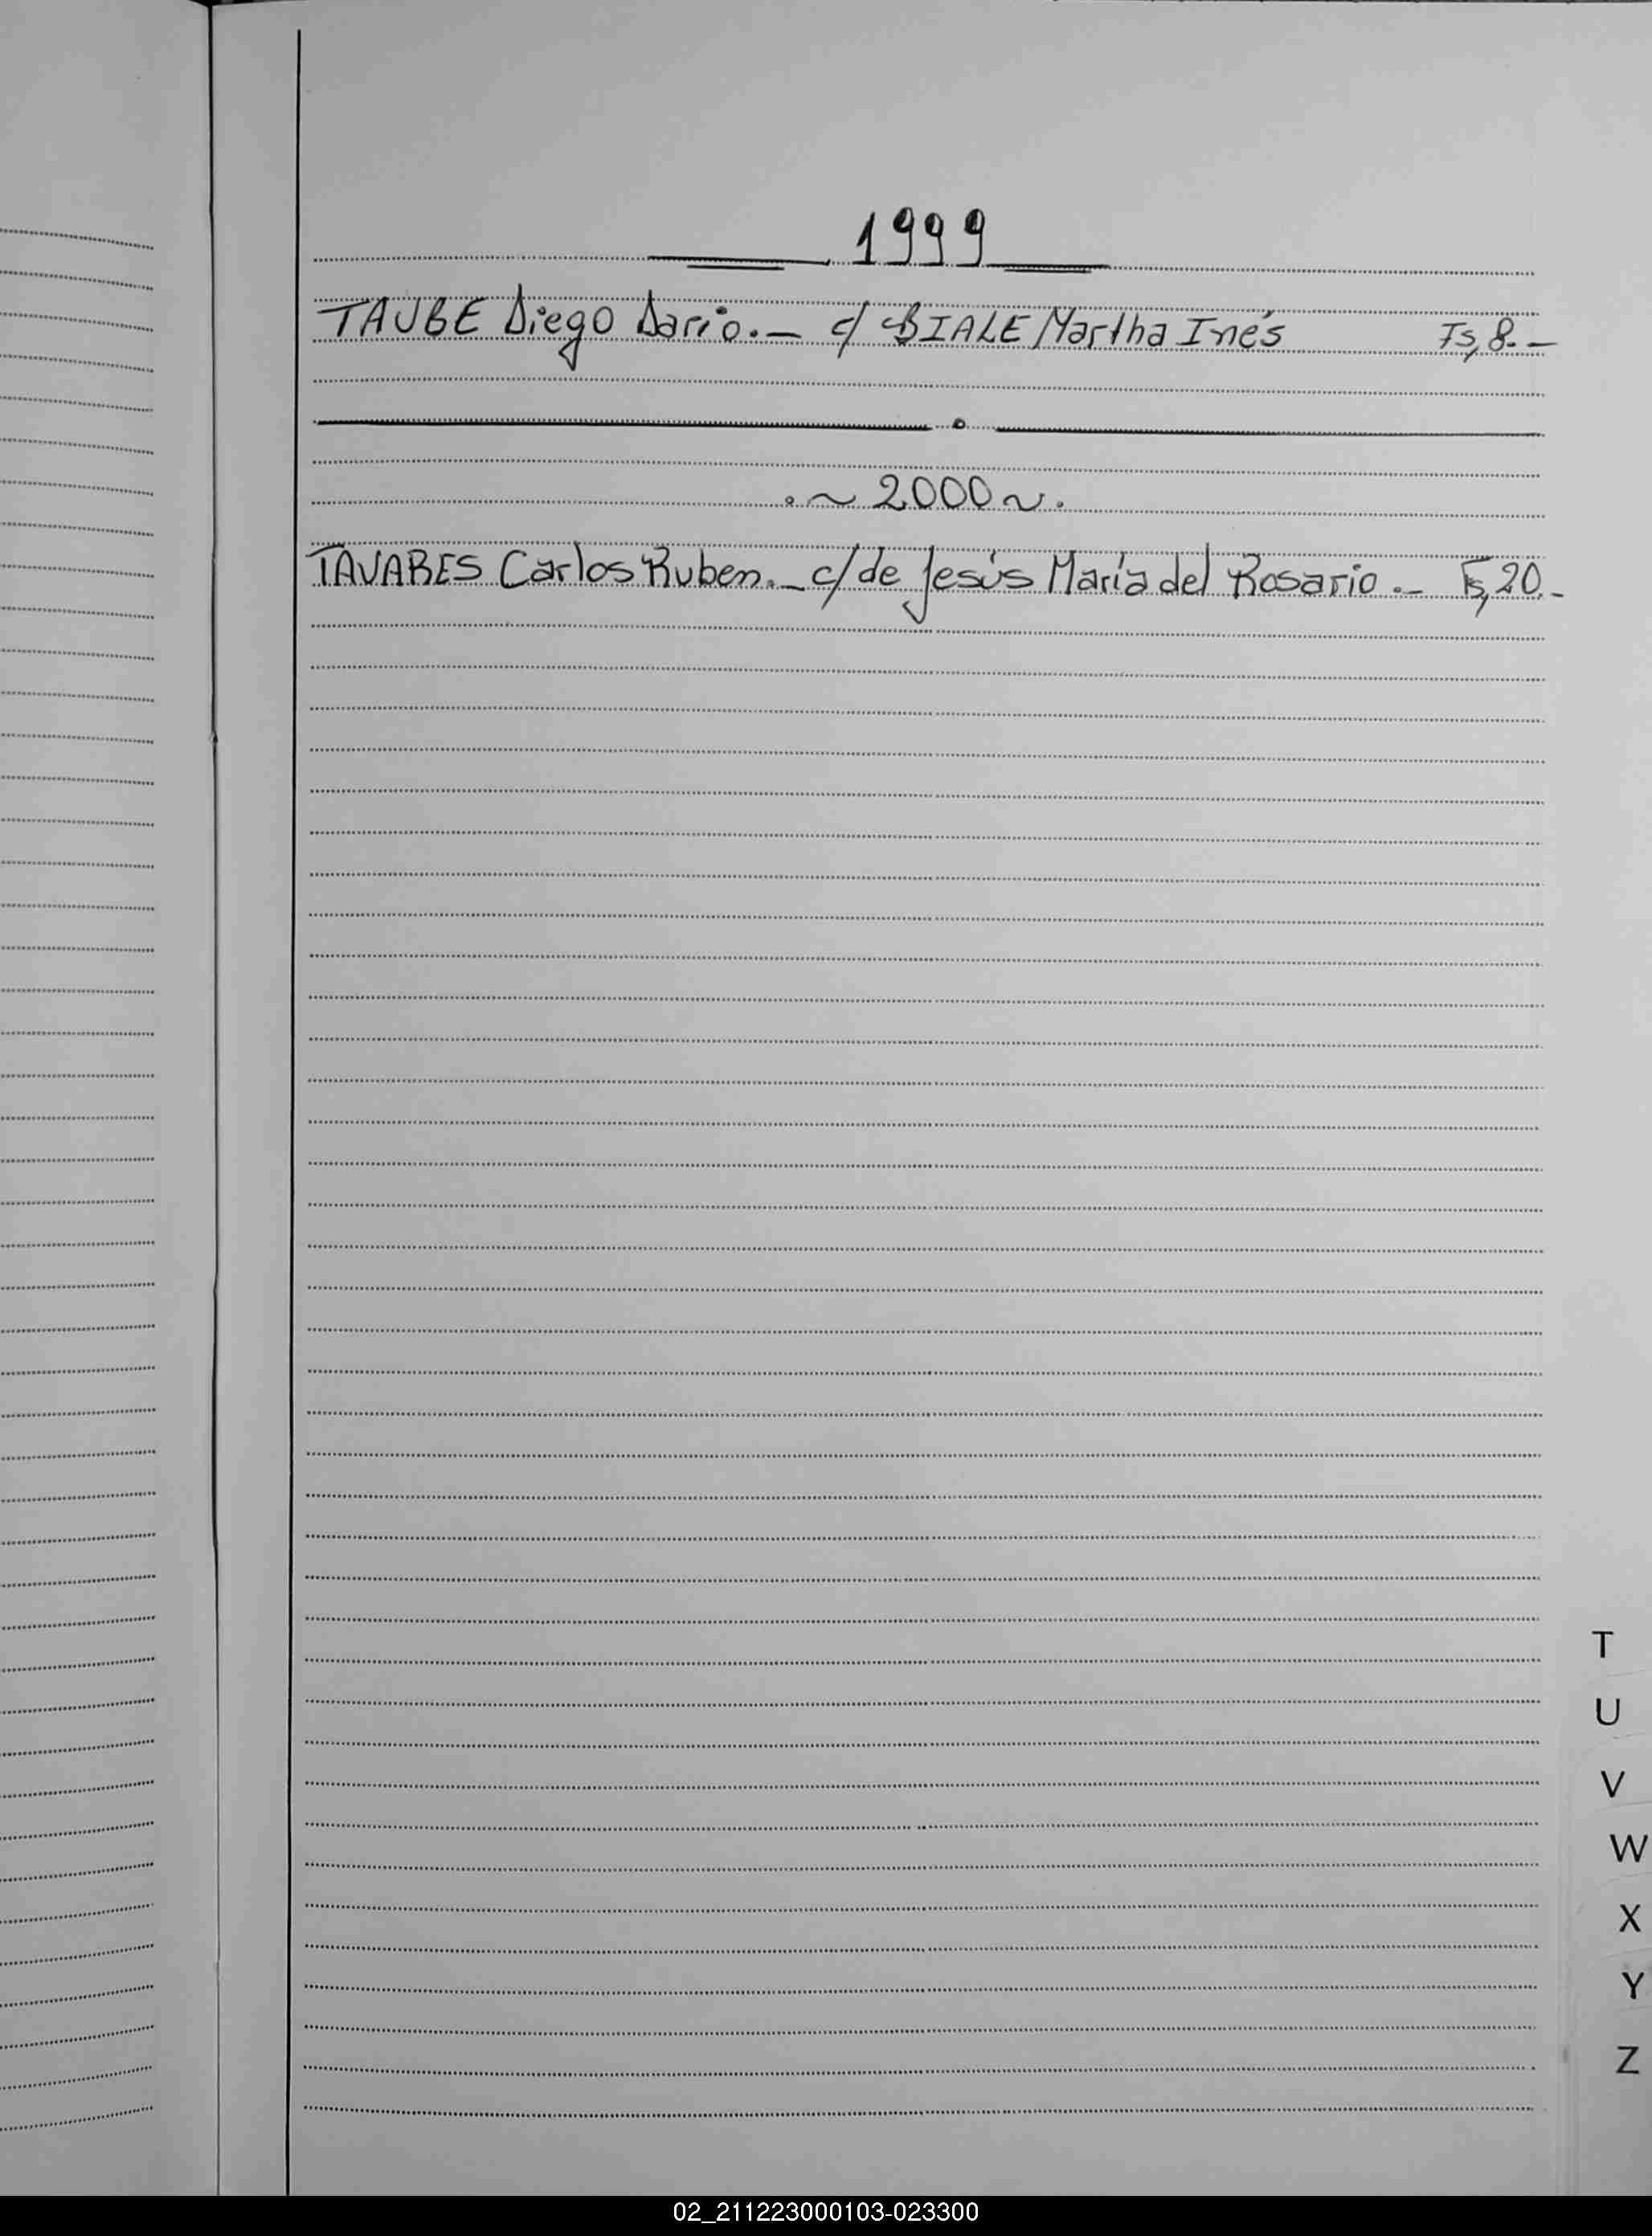 1999
TAUBE Diego Dario.- c/ BIALE Martha Inés Fs, 8.-
.~ 2000 ~.
TAVARES Carlos Ruben.- c/ de Jesús María del Rosario.- Fs, 20.-
T
U
V
W
X
Y
Z
02_211223000103-023300